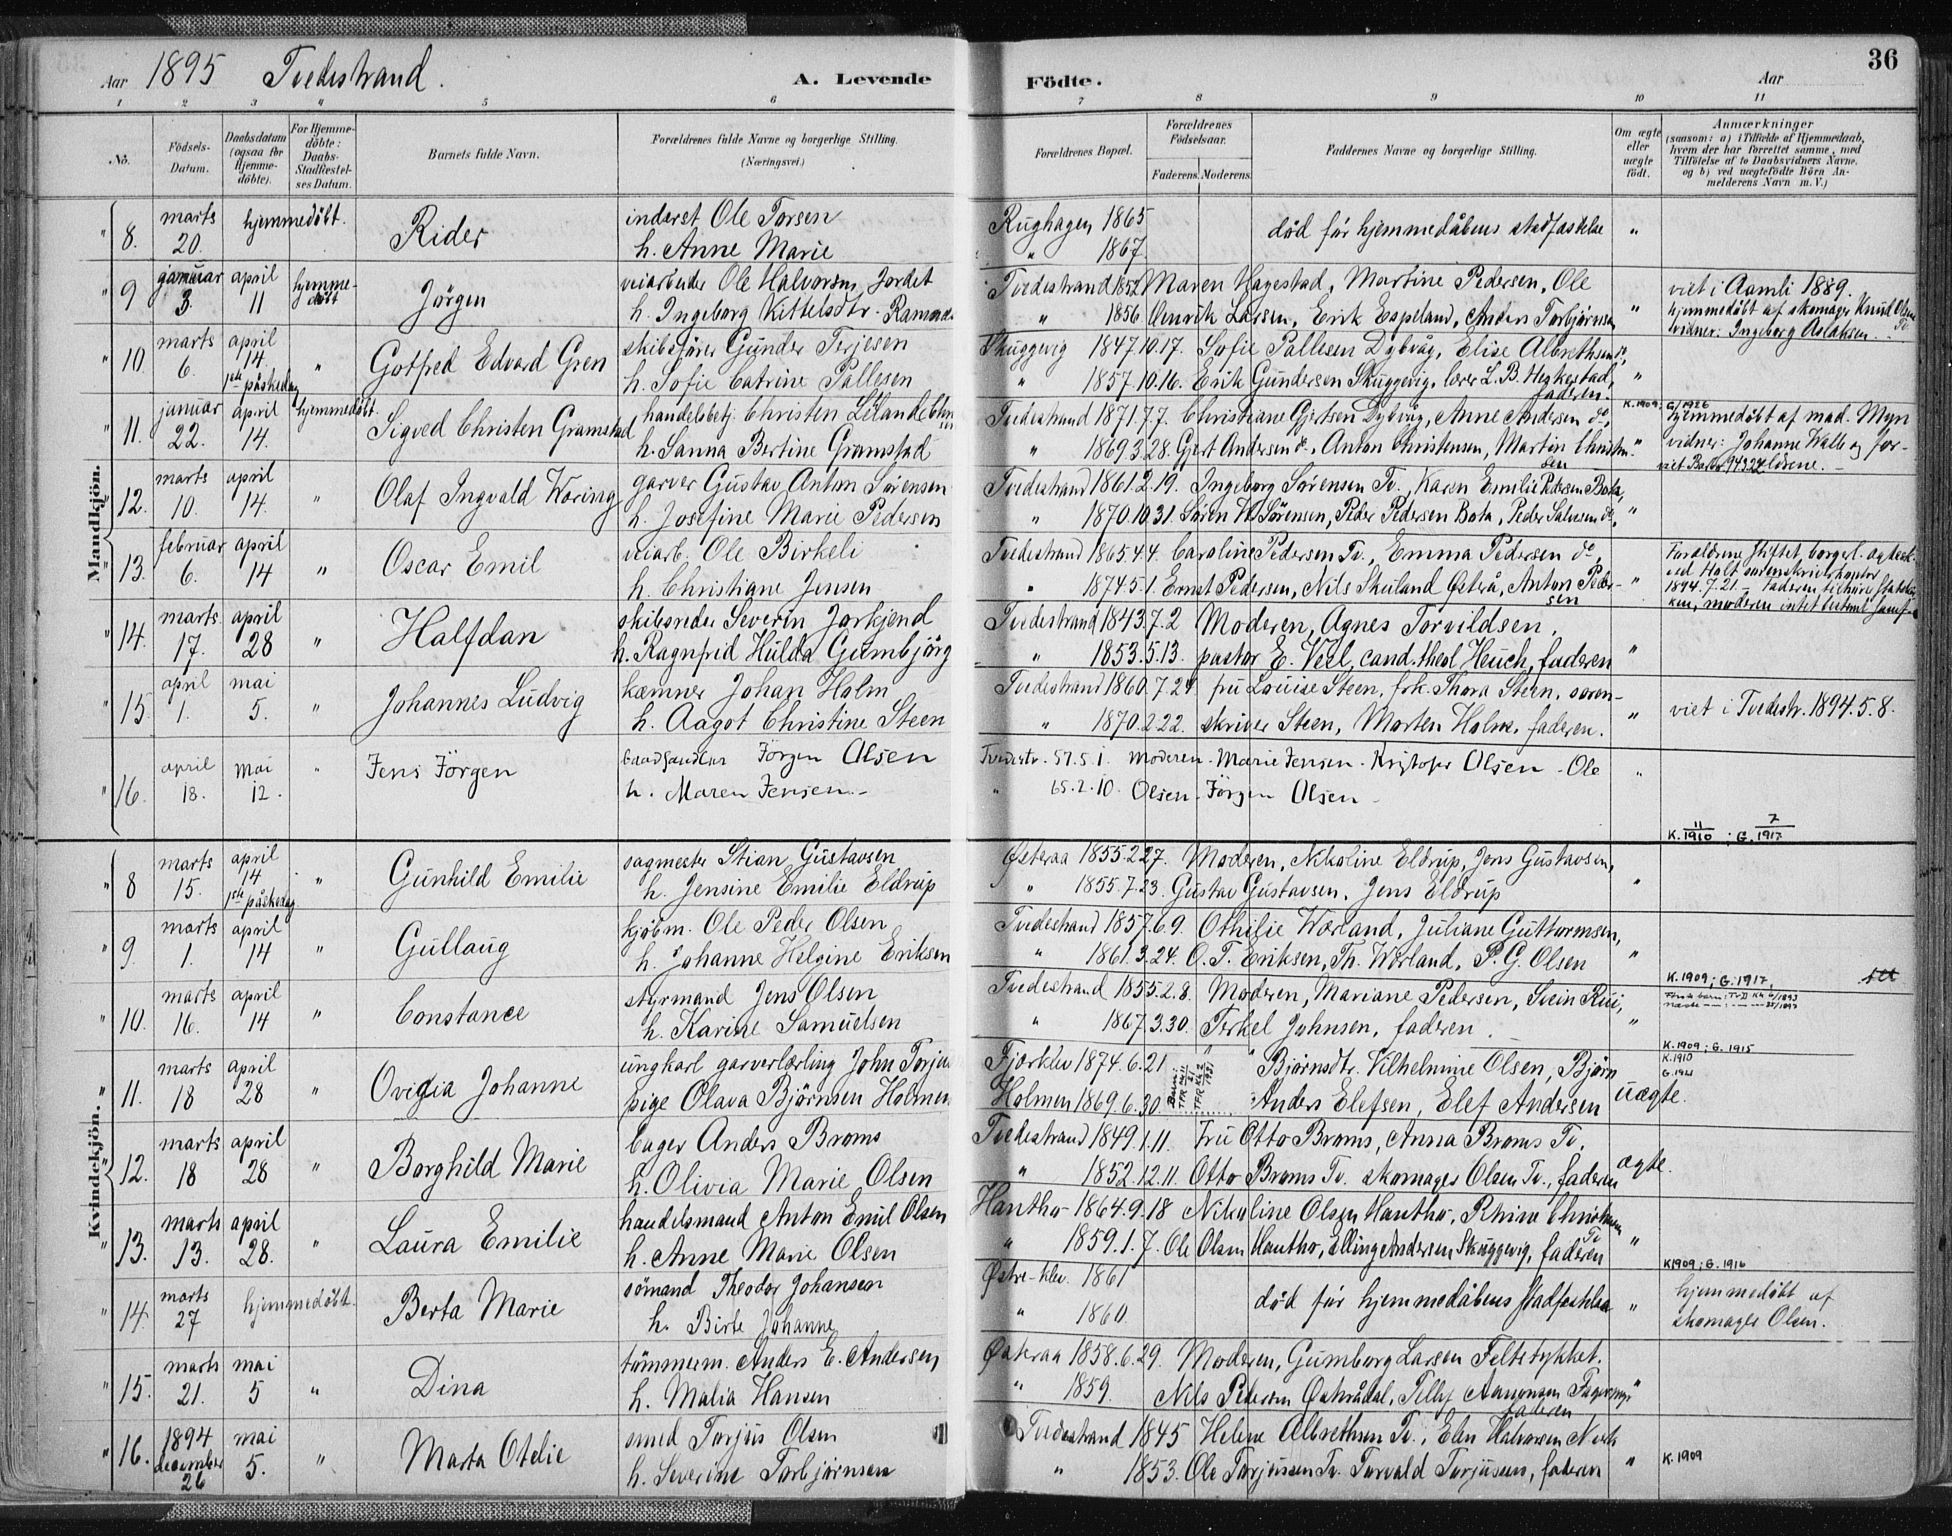 Aar 1895 Tvedestrand. A. Levende Födte. Aar 36
1 2 3 4 5 6 7 8 9 10 11
No. Födsels-Datum. Daabsdatum (ogsaa for Hjemmedöbte). For Hjemmedöbte: Daabs-Stadfæstelses Datum. Barnets fulde Navn. Forældrenes fulde Navne og borgerlige Stilling. (Næringsvei.) Forældrenes Bopæl. Forældrenes Födselsaar. Faderens. Moderens. Faddernes Navne og borgerlige Stilling. Om ægte eller uægte födt. Anmærkninger (saasom: a) i Tilfælde af Hjemmedaab, hvem der har forrettet samme, med Tilföielse af to Daabsvidners Navne, og b) ved uægtefödte Börn Anmelderens Navn m. V.)
Mandkjön.
" 8. marts 20. hjemmedöbt. Rider inderst Ole Torsen Rughagen 1865 död før hjemmedåbens stadfæstelse "
h. Anne Marie " 1867.
" 9 januar 3. april 11 hjemmedöbt Jörgen veiarbeider Ole Halvorsen Jordet Tvedestrand 1852 Maren Hagestad, Martine Pedersen, Ole viet i Aamli 1889.
h. Ingeborg Kittelsdtr. " 1856 Henrik Larsen, Erik Espeland, Anders Torbjørnsen " hjemmedöbt af skomager Knud Olsen Tv
vidner: Ingeborg Aslaksen
" 10. marts 6. april 14 1ste påskedag " Gotfred Edvard Gren skibsfører Gunder Terjesen Skuggevig 1847.10.17. Sofie Pallesen Dybvåg, Elise Albrethsen do,
h. Sofie Catrine Pallesen " 1857.10.16. Erik Gundersen Skuggevig, lærer L. B. Hegkestad, faderen. "
K. 1909; G/1926
" 11. januar 22. april 14. hjemmedöbt. Sigved Christen Gramstad handelsbetj. Christen Tvedestrand 1871.7.7. Christiane Gjertsen Dybvåg, Anne Andersen do, hjemmedöbt af mad. Myn
h. Sanna Bertine Gramstad " 1869.3.28. Gjert Andersen do, Anton Christensen, Martin Christensen " vidner: Johanne Walle og forældrene.
" 12. marts 10. april 14. " Olaf Ingvald Woring garver Gustav Anton Sørensen Tvedestrand 1861.2.19. Ingeborg Sørensen Tv., Karen Emilie Pedersen Bota,
h. Josefine Marie Pedersen " 1870.10.31. Søren W Sørensen, Peder Pedersen Bota, Peder Salvesen do, "
" 13. februar 6. april 14 " Oscar Emil veiarb. Ole Birkeli Tvedestrand 1865.4.4. Caroline Pedersen Tv., Emma Pedersen do, Forældrene stiftet borgerl. ægtesk.
h. Christiane Jensen " 1874.5.1. Ernst Pedersen, Nils Skuiland Østerå, Anton Pedersen " ved Holt sorenskriverkontor 1894.7.21. Faderen tilhører statskirken, moderen intet bestemt samf.
" 14. marts 17. april 28 " Halfdan skibsreder Severin Jorkjend Tvedestrand 1843.7.2 Moderen, Agnes Torvildsen,
h. Ragnfrid Hulda Gumbjörg " 1853.5.13. pastor E. Veel, cand. theol Heuch, faderen "
" 15. april 1. mai 5. " Johannes Ludvig kæmner Johan Holm Tvedestrand 1860.7.24 fru Louise Steen, frk. Thora Steen, soren-
h. Aagot Christine Steen " 1870.2.22. skriver Steen, Morten Holm, faderen. " viet i Tvedestr. 1894.5.8.
" 16. april 18. mai 12. " Jens Jörgen Jörgen Olsen Tvedestr. 57.5.1. Moderen - Marie Jensen - Kristofer Olsen - Ole "
h. Maren Jensen - " 65.2.10. Olsen - Jörgen Olsen -
K. 11/1910; G. 7/1917
Kvindekjön.
" 8 marts 15. april 14 1ste påskedag " Gunhild Emilie sagmester Stian Gustavsen Østeraa 1855.2.27. Moderen, Nikoline Eldrup, Jens Gustavsen,
h. Jensine Emilie Eldrup " 1855.7.23. Gustav Gustavsen, Jens Eldrup "
" 9 marts 1. april 14 " Gullaug kjøbm. Ole Peder Olsen Tvedestrand 1857.6.9. Othilie Wørland, Juliane Guttormsen,
h. Johanne Helgine Eriksen " 1861.3.24. O. T. Eriksen, Th. Wørland, P. G. Olsen "
K. 1909; G. 1917.
" 10. marts 16. april 14 " Constance styrmand Jens Olsen Tvedestrand 1855.2.8. Moderen, Mariane Pedersen, Svein Rui,
h. Karine Samuelsen " 1867.3.30. Terkel Johnsen, faderen. "
K. 1909; G. 1915
" 11. marts 18 april 28 " Ovidia Johanne ungkarl garverlærling John Torjus Fjærklev 1874.6.21 Bjørnsdtr. Vilhelmine Olsen, Bjørn K. 1910
pige Olava Bjørnsen Holmen Holmen 1869.6.30. Anders Elefsen, Elef Andersen uægte.
" 12. marts 18 april 28 " Borghild Marie bager Anders Broms Tvedestrand 1849.1.11. Fru Otto Broms, Anna Broms Tv,
h. Olivia Marie Olsen " 1852.12.11. Otto Broms Tv. skomager Olsen Tv., faderen ægte.
" 13. marts 13. april 28. " Laura Emilie handelsmand Anton Emil Olsen Hantho 1864.9.18 Nikoline Olsen Hantho, Rhine Christensen Tv
h. Anne Marie Olsen " 1859.1.7. Ole Olsen Hantho, Elling Andersen Skuggevig, faderen "
K1909; G. 1916
" 14. marts 27 hjemmedöbt. Berta Marie sömand Theodor Johansen Østre-klev. 1861 död før hjemmedåbens stadfæstelse " hjemmedöbt af
h. Birte Johanne " 1860. skomager Olsen.
" 15. marts 21. mai 5 " Dina tömmerm. Anders E. Andersen Østeraa 1858.6.29. Moderen, Gumborg Larsen Feltstykket.
h. Malia Hansen " 1859. Nils Pedersen Østerådal, Tellef Aanonsen faderen "
" 16. 1894 december 26 mai 5. " Marta Otelie smed Torjus Olsen Tvedestrand 1845 Helene Albrethsen Tv., Elen Halvorsen
h. Severine Torbjørnsen " 1853. Ole Torjussen Tv. Torvald Torjussen, faderen " K. 1909